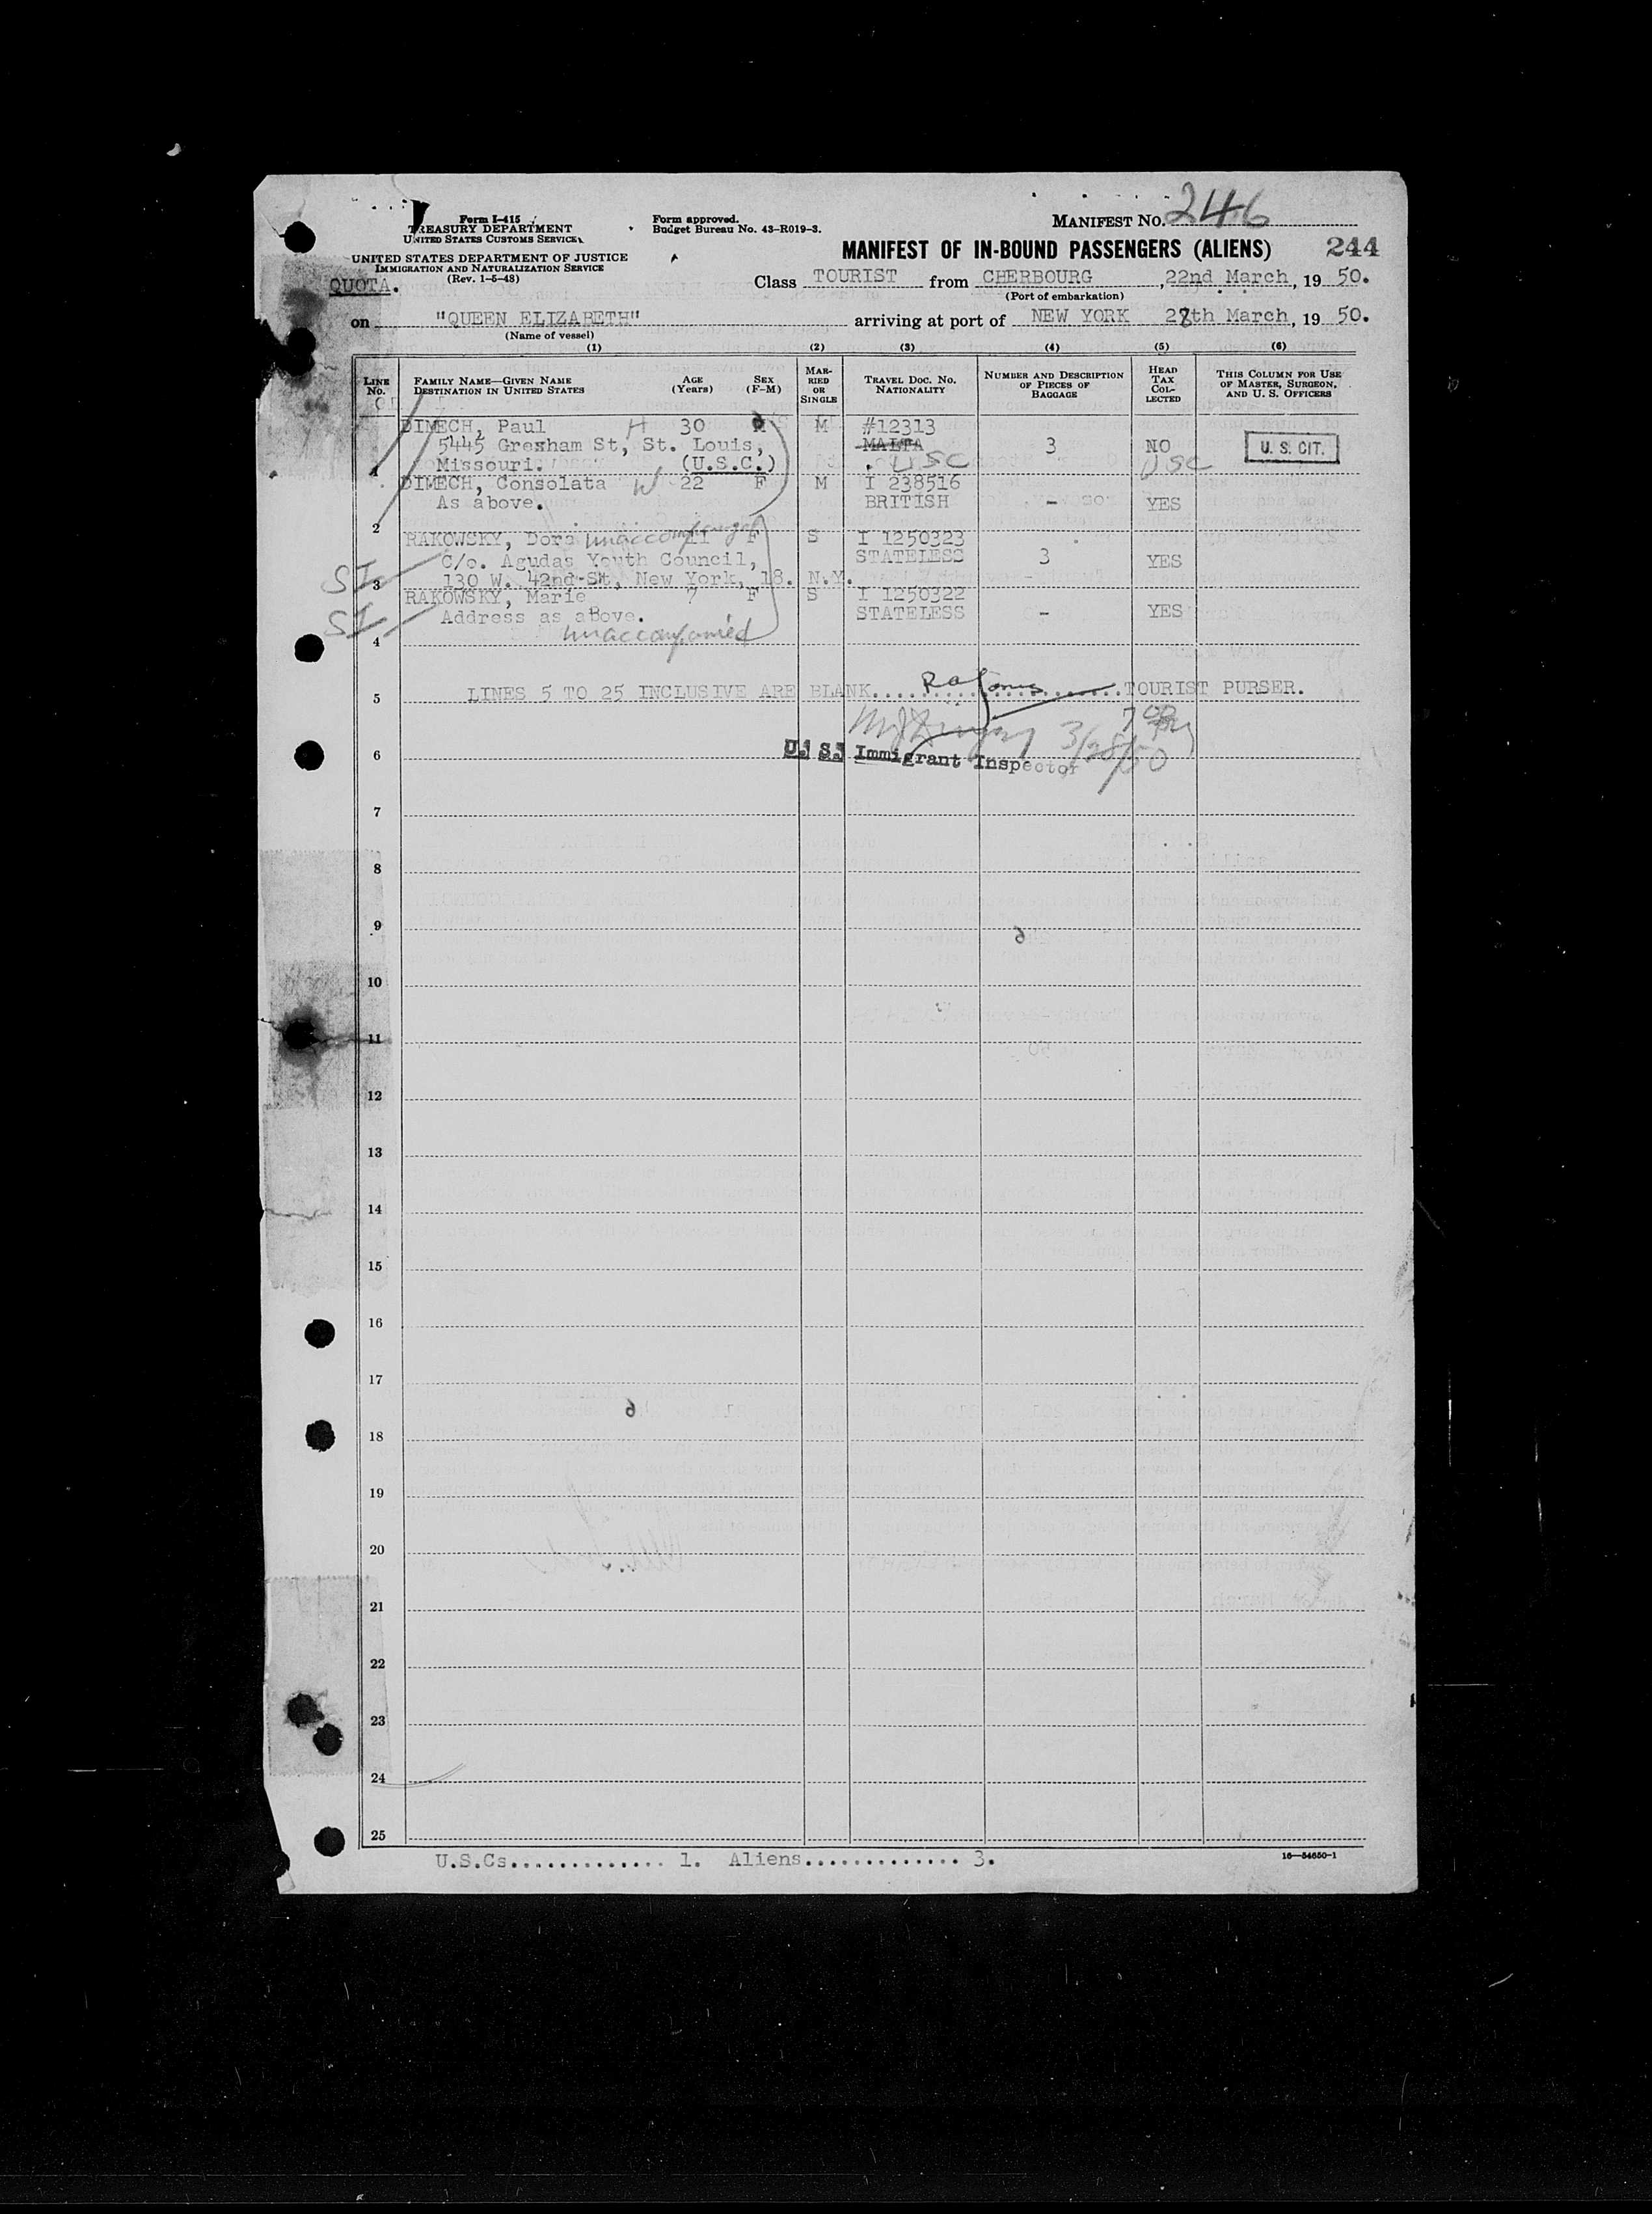 Form I-415
TREASURY DEPARTMENT
UNITED STATES CUSTOMS SERVICE
UNITED STATES DEPARTMENT OF JUSTICE
IMMIGRATION AND NATURALIZATION SERVICE
(Rev. 1-5-48)
QUOTA.
Form approved.
Budget Bureau No. 43-R019-3.
MANIFEST NO. 246
MANIFEST OF IN-BOUND PASSENGERS (ALIENS) 244
Class TOURIST from CHERBOURG, 22nd March, 19 50.
(Port of embarkation)
on "QUEEN ELIZABETH" arriving at port of NEW YORK 28th March, 19 50.
(Name of vessel)
(1) (2) (3) (4) (5) (6)
LINE NO. FAMILY NAME—GIVEN NAME DESTINATION IN UNITED STATES AGE (YEARS) SEX (F-M) MARRIED OR SINGLE TRAVEL DOC. NO. NATIONALITY NUMBER AND DESCRIPTION OF PIECES OF BAGGAGE HEAD TAX COLLECTED THIS COLUMN FOR USE OF MASTER, SURGEON, AND U. S. OFFICERS
DIMECH, Paul H 30 M M #12313
5445 Gresham St, St. Louis, MALTA 3 NO U. S. CIT.
1 Missouri. (U.S.C.) USC USC
DIMECH, Consolata W 22 F M I 238516
As above. BRITISH - YES
2
RAKOWSKY, Dora unaccompanied 11 F S I 1250323
C/o. Agudas Youth Council, STATELESS 3 YES
SI 3 130 W. 42nd St, New York, 18. N.Y.
RAKOWSKY, Marie 7 F S I 1250322
SI Address as above. STATELESS - YES
4 unaccompanied
5 LINES 5 TO 25 INCLUSIVE ARE BLANK. TOURIST PURSER.
3/28/50
6 U. S. Immigrant Inspector
7
8
9
10
11
12
13
14
15
16
17
18
19
20
21
22
23
24
25
U.S.Cs............. 1. Aliens............. 3.
16—54650-1